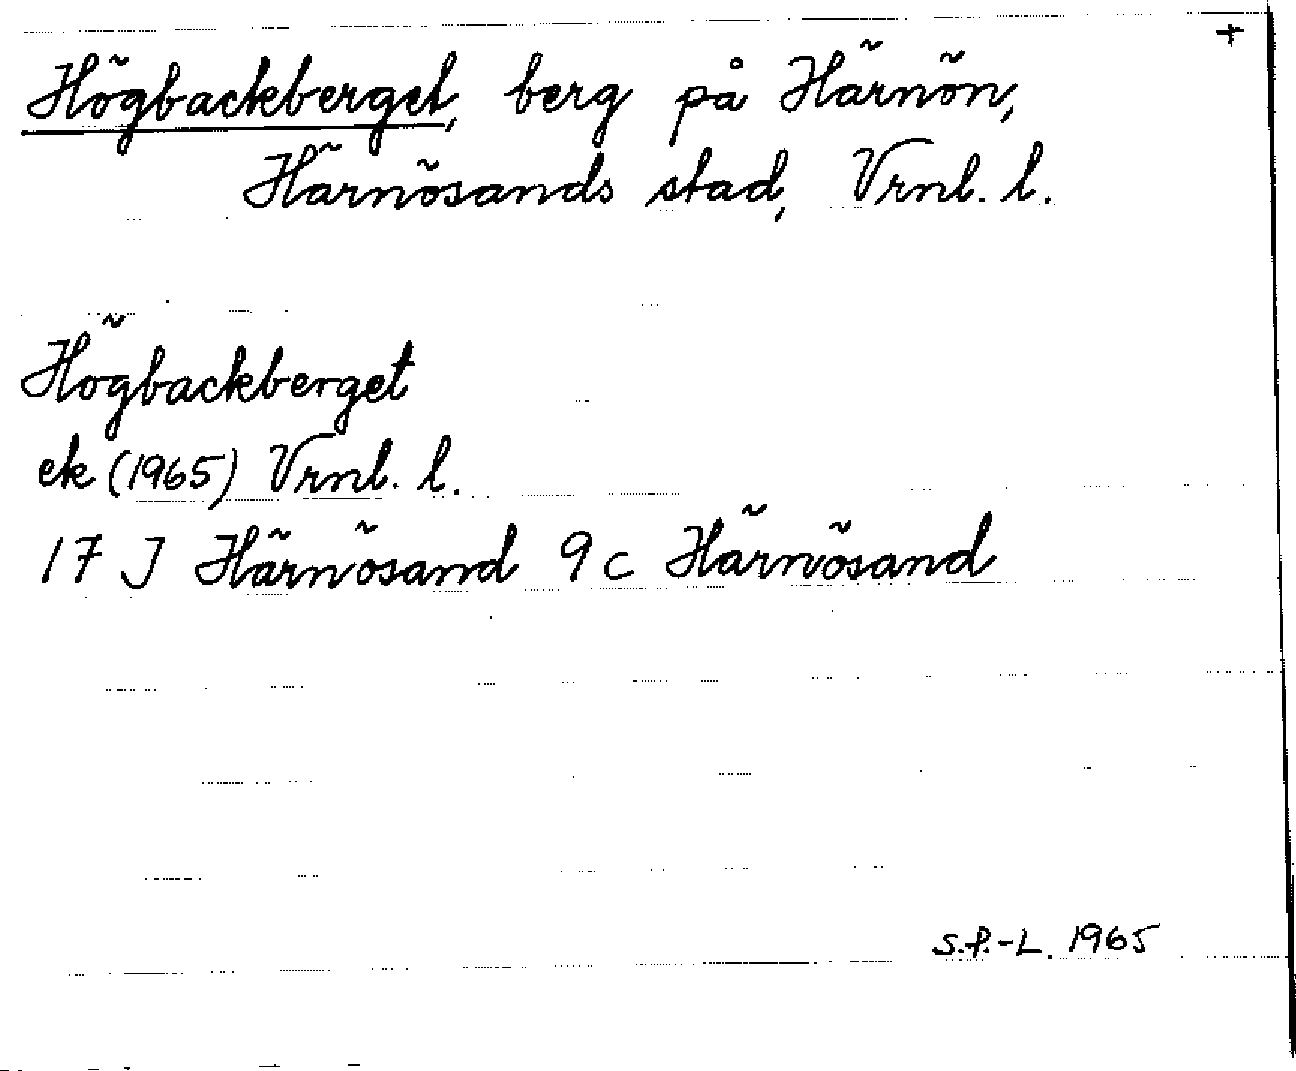 +
Högbackberget, berg på Härnön,
Härnösands stad, Vrnl. l.
Högbackberget
ek (1965) Vrnl. l.
17 J Härnösand 9 c Härnösand
S.P.-L. 1965